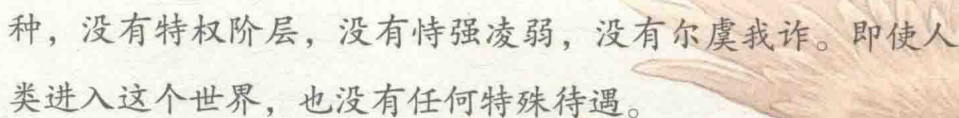 种，没有特权阶层，没有恃强凌弱，没有尔虞我诈。即使人
类进入这个世界，也没有任何特殊待遇。